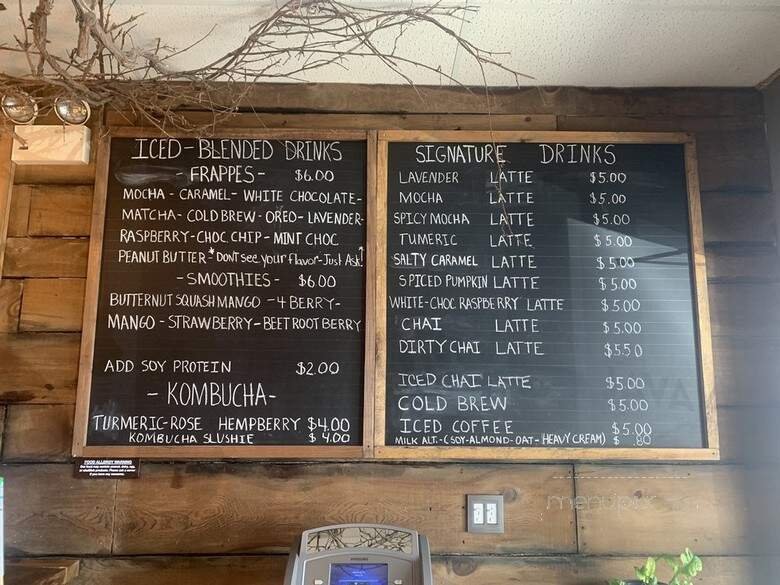 ICED-BLENDED DRINKS
- FRAPPES - $6.00
MOCHA - CARAMEL - WHITE CHOCOLATE -
MATCHA - COLD BREW - OREO - LAVENDER -
RASPBERRY - CHOC. CHIP - MINT CHOC
PEANUT BUTTER * Dont see your flavor - Just Ask!
- SMOOTHIES - $6.00
BUTTERNUT SQUASH MANGO - 4 BERRY -
MANGO - STRAWBERRY - BEETROOT BERRY
ADD SOY PROTEIN $2.00
- KOMBUCHA -
TURMERIC-ROSE HEMPBERRY $4.00
KOMBUCHA SLUSHIE $4.00
SIGNATURE DRINKS
LAVENDER LATTE $5.00
MOCHA LATTE $5.00
SPICY MOCHA LATTE $5.00
TUMERIC LATTE $5.00
SALTY CARAMEL LATTE $5.00
SPICED PUMPKIN LATTE $5.00
WHITE-CHOC RASPBERRY LATTE $5.00
CHAI LATTE $5.00
DIRTY CHAI LATTE $5.50
ICED CHAI LATTE $5.00
COLD BREW $5.00
ICED COFFEE $5.00
MILK ALT. - (SOY-ALMOND-OAT-HEAVY CREAM) $ .80
FOOD ALLERGY WARNING